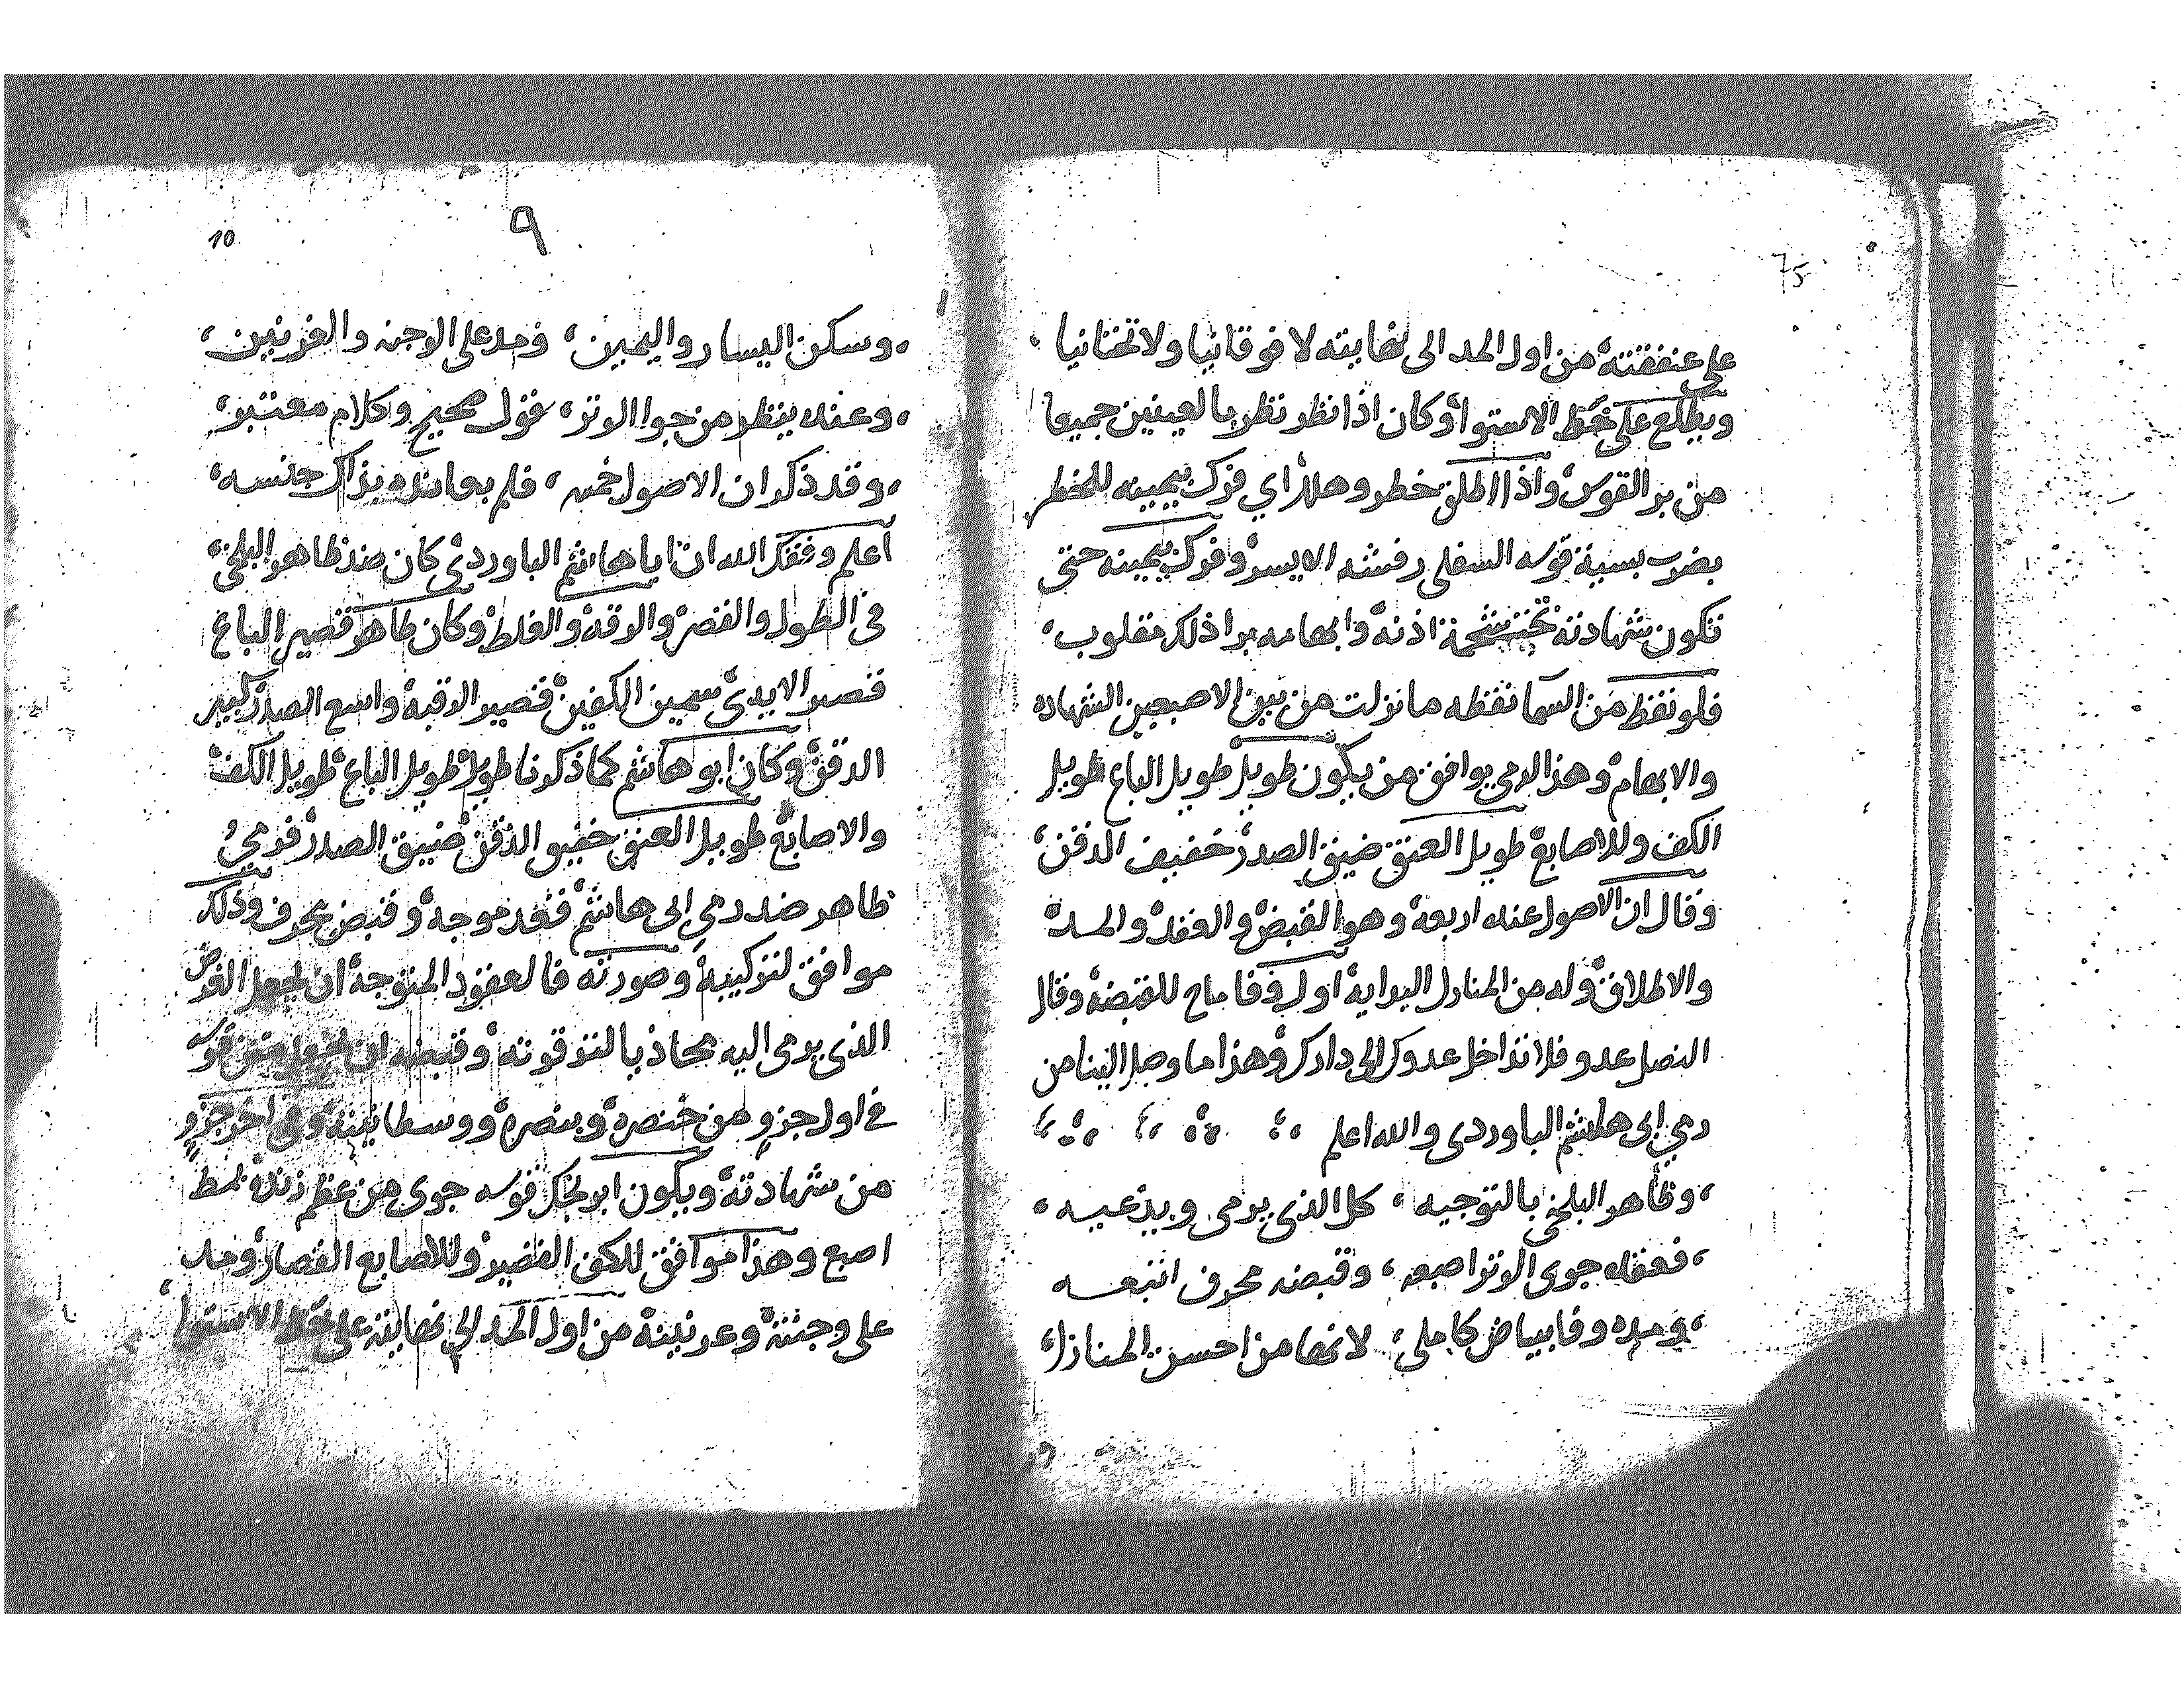 على عنفقته من اول المد الى نهايته لا فوقانيا ولا تحتانيا
ويطلع على خط الاستوا وكان اذا نظر نظر بالعينين جميعا
من بر القوس واذا اطلق خطر وهلل اي فرك بيمينه للخطر
بضرب بسية قوسه السفلى رفشه الايسر وفرك بيمينه حتى
تكون شهادته تحت شحمة اذنه وابهامه برا ذلك مقلوب
فلو نقط من السما نقطه ما نزلت من بين الاصبعين الشهاده
والابهام وهذا الرمي يوافق من يكون طويل طويل الباع طويل
الكف وللاصابع طويل العنق ضيق الصدر خفيف الدقن
وقال ان الاصول عنده اربعة وهو القبض والعقد والمد
والاطلاق وله من المنازل البداية اول وقا للقبضة وقال
النصل عدو فلا تداخل عدوك الى دارك وهذا ما وصل الينا من
رمي ابى هاشم الباوردى والله اعلم
وظاهر البلخى بالتوجيه ، كل الذى يرمى ويدعيه ،
، فعقده جوى الوتر اصبعه ، وقبضه محرف اتبعه
، ومده وفا ببياض كاملى ، لانها من احسن المنازل ،
٩
10
، وسكن اليسار واليمين ، ومد على الوجنه والعرنين ،
، وعنده ينظر من جوا الوتر ، قول صحيح وكلام معتبر ،
، وقد ذكر ان الاصول خمسه ، فلم يعانده بذاك جنسه ،
اعلم وفقك الله ان ابا هاشم الباوردى كان ضد ظاهر البلخى
فى الطول والقصر والرقة والغلظ وكان طاهر قصير الباع
قصير الايدى سمين الكفين قصير الرقبة واسع الصدر كبير
الدقن وكان ابو هاشم كما ذكرنا طويل طويل الباع طويل الكف
والاصابع طويل العنق خفيف الدقن ضيق الصدر فرمي
ظاهر ضد رمي ابى هاشم فعقد موجه وقبض محرف وذلك
موافق لتركيبة وصورته فالعقود المتوجة ان يجعل الغرض
الذى يرمى اليه محاذ بالترقوته وقبضه ان متن قوسه
فى اول جزو من خنصره وبنصره ووسطانيته وفى اخر جزو
من شهادته ويكون ابرنجك قوسه جوى من عظم زنده بمسط
اصبع وهذا موافق للكف القصير وللاصابع القصار ومد
على وجنته وعرنينة من اول المد الى نهايته على خط الاستوا